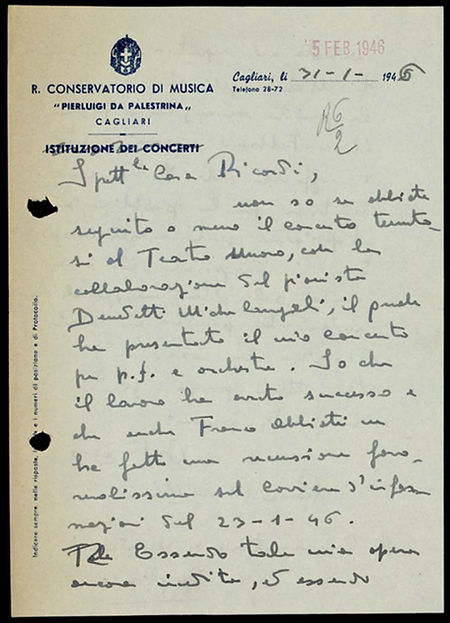 5 FEB. 1946
R. CONSERVATORIO DI MUSICA
"PIERLUIGI DA PALESTRINA"
CAGLIARI
ISTITUZIONE DEI CONCERTI
Cagliari, li 31-1- 1946
Telefono 28-72
R6/2
Spett.le Casa Ricordi,
non so se abbiate
seguito o meno il concerto tenuto-
si al Teatro Nuovo, con la
collaborazione del pianista
Benedetti Michelangeli, il quale
ha presentato il mio concerto
per p.f. e orchestra. So che
il lavoro ha avuto successo e
che anche Franco Abbiati ne
ha fatto una recensione favo-
revolissima sul Corriere d'infor-
mazioni del 23-1-46.
Essendo tale mia opera
ancora inedita, ed essendo
Indicare sempre, nella risposta, i numeri di posizione e di Protocollo.